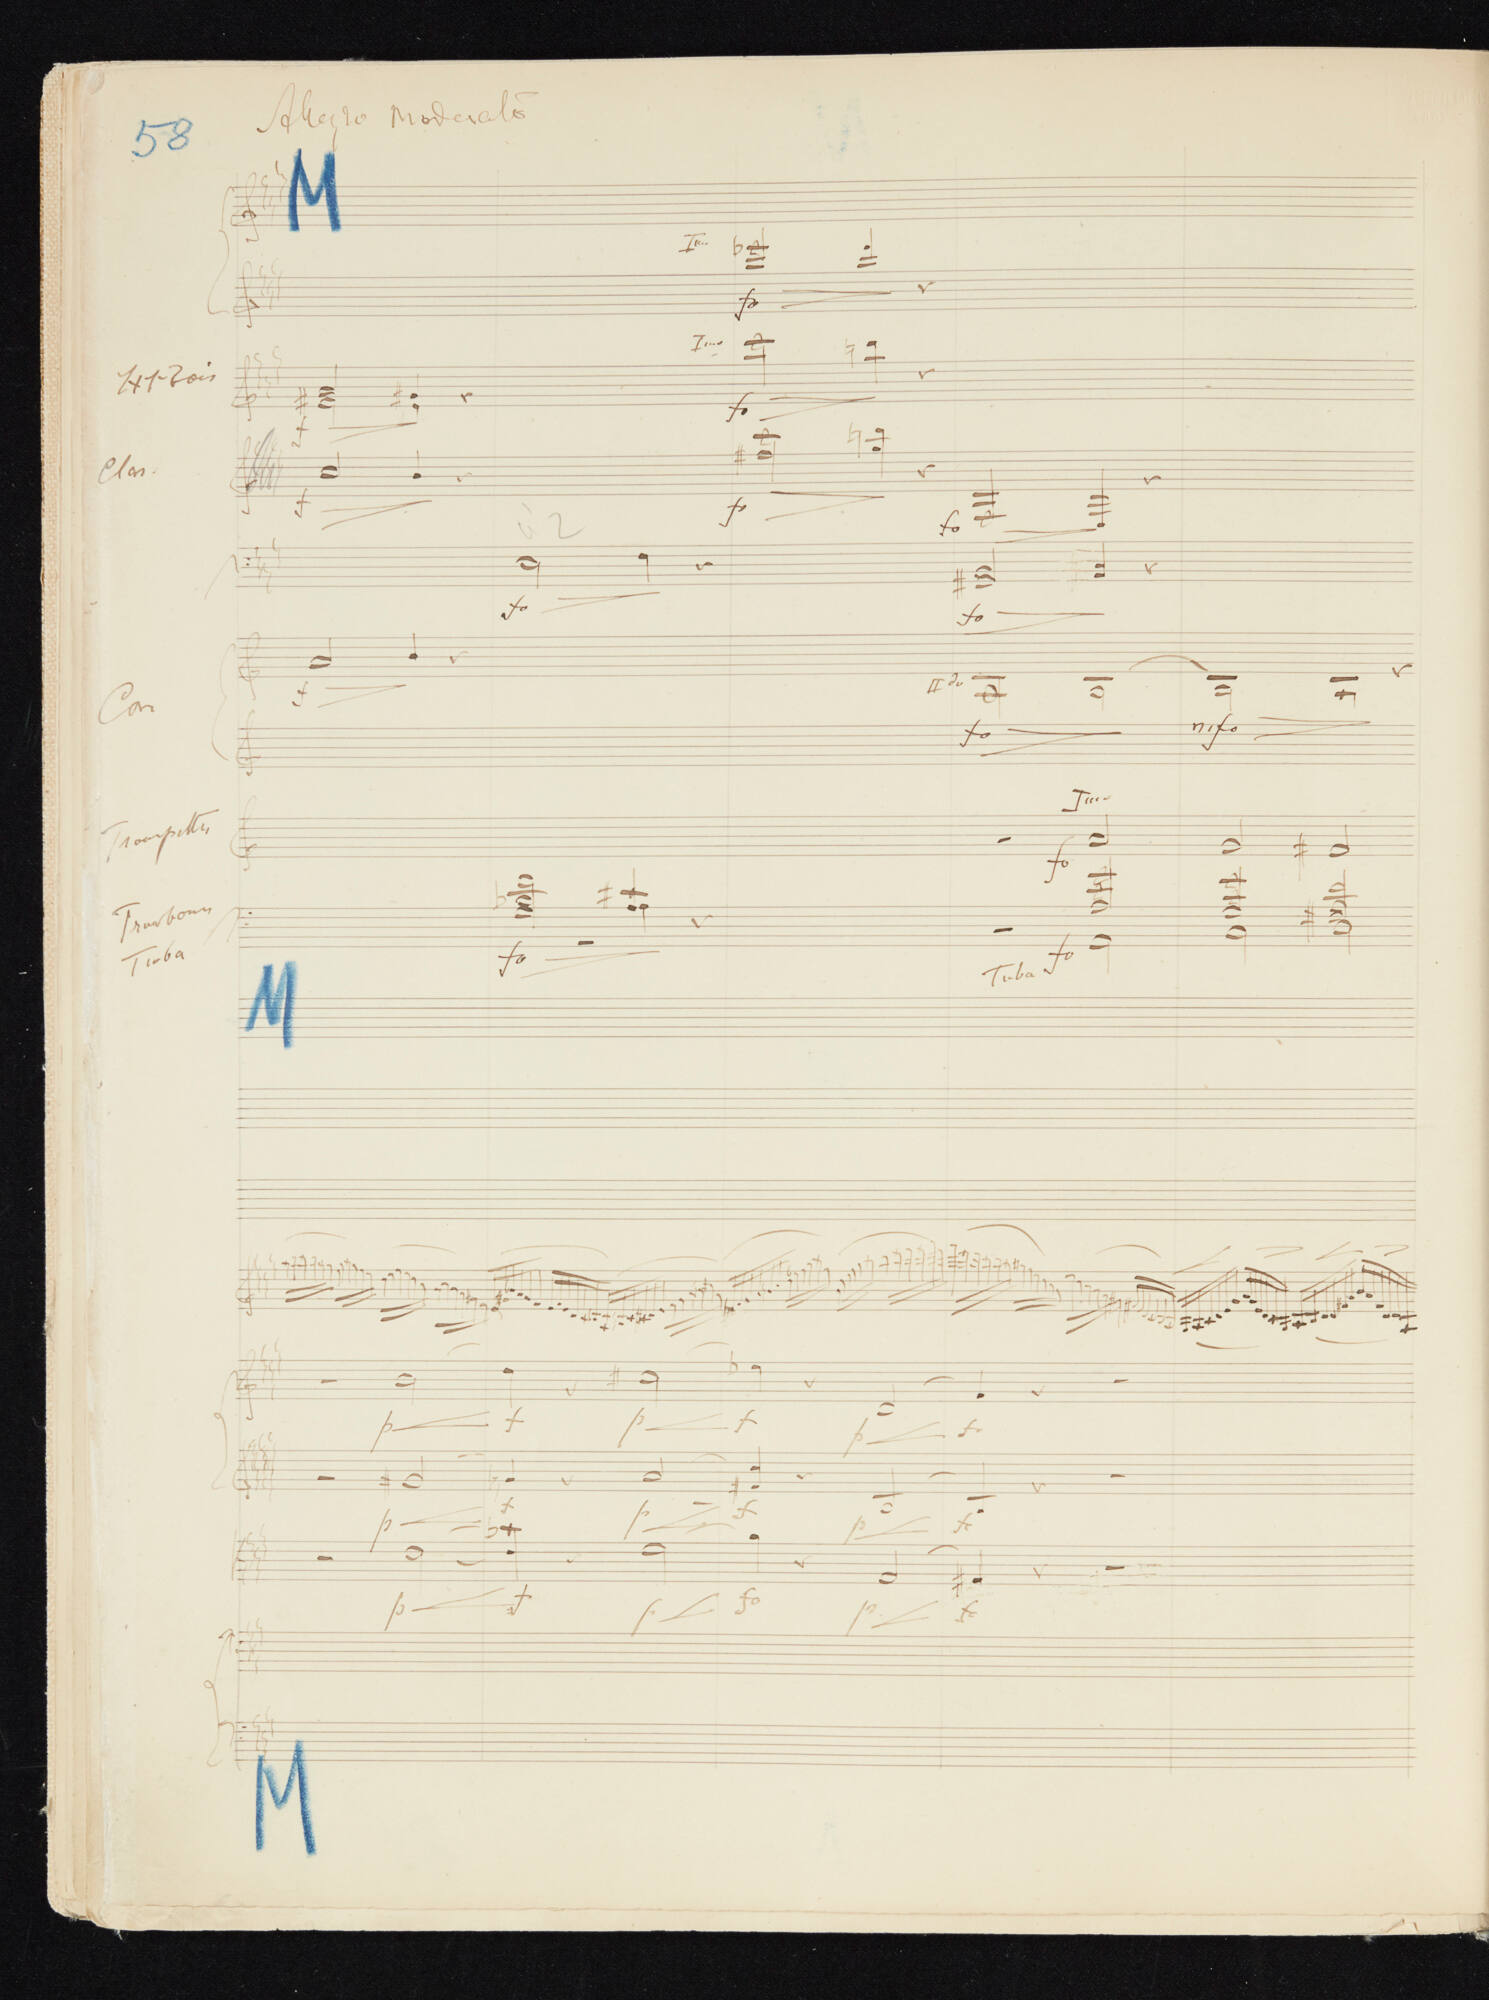 58
Allegro Moderato
M
Imo
fo
Htbois
Imo
f
fo
Clar.
f
fo
fo
à 2
fo
fo
Cors
f
IIdo
fo
mfo
Trompettes
Imo
fo
Trombones
Tuba
fo
Tuba
fo
M
p f p f p fo
p f p fo p fo
p f p fo p fo
M